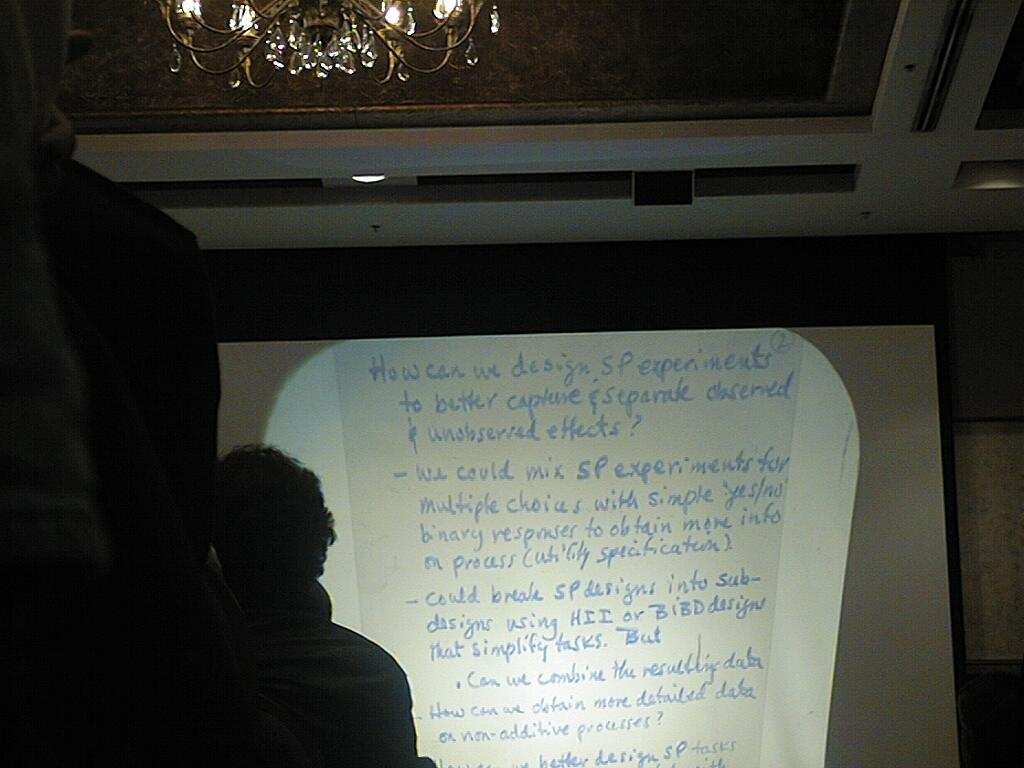 2
How can we design SP experiments
to better capture & separate observed
& unobserved effects?
- we could mix SP experiments for
multiple choices with simple 'yes/no'
binary responses to obtain more info
on process (utility specification).
- Could break SP designs into sub-
designs using HII or BiBD designs
that simplify tasks. But
. Can we combine the resulting data
- How can we obtain more detailed data
on non-additive processes?
we better design SP tasks
with